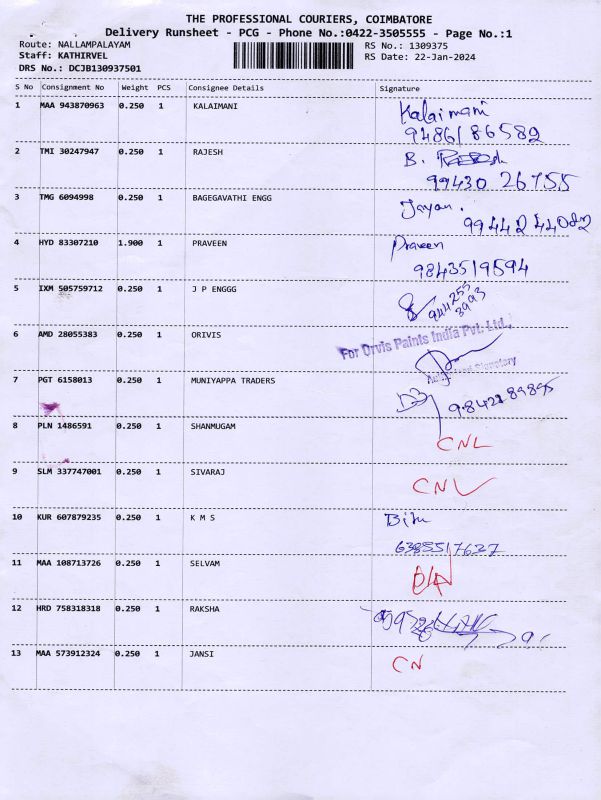 THE PROFESSIONAL COURIERS, COIMBATORE
Delivery Runsheet - PCG - Phone No.:0422-3505555 - Page No.:1
Route: NALLAMPALAYAM RS No.: 1309375
Staff: KATHIRVEL RS Date: 22-Jan-2024
DRS No.: DCJB130937501
S No Consignment No Weight PCS Consignee Details Signature
1 MAA 943870963 0.250 1 KALAIMANI Kalaimani
9486186582
2 TMI 30247947 0.250 1 RAJESH B.
99430 26755
3 TMG 6094998 0.250 1 BAGEGAVATHI ENGG Jayan.
99442 44082
4 HYD 83307210 1.900 1 PRAVEEN Praveen
9843519594
5 IXM 505759712 0.250 1 J P ENGGG 944255
3993
6 AMD 28055383 0.250 1 ORIVIS For Orvis Paints India Pvt. Ltd.,
Authorised Signatory
7 PGT 6158013 0.250 1 MUNIYAPPA TRADERS
8 PLN 1486591 0.250 1 SHANMUGAM CNL
9 SLM 337747001 0.250 1 SIVARAJ CNL
10 KUR 607879235 0.250 1 K M S
6385517627
11 MAA 108713726 0.250 1 SELVAM
12 HRD 758318318 0.250 1 RAKSHA
13 MAA 573912324 0.250 1 JANSI CN